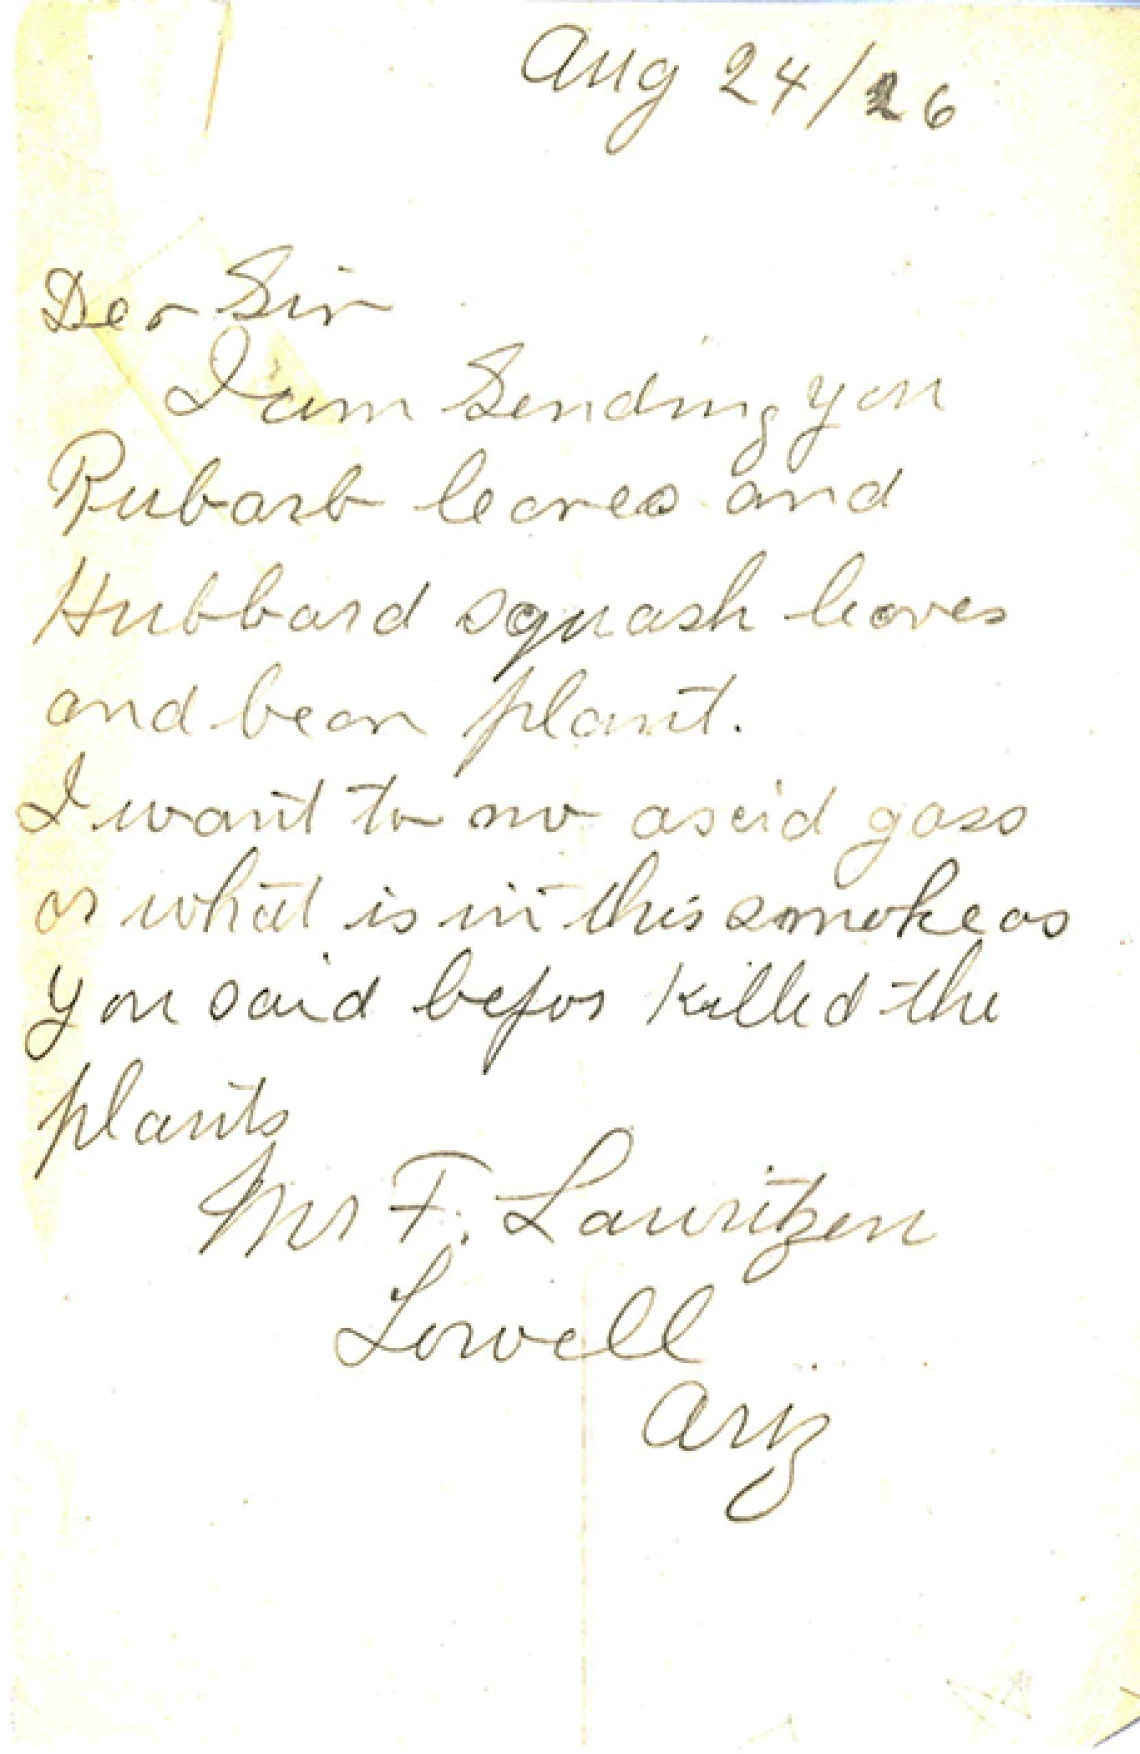 Aug 24/26
Der Sir
I am Sending you
Rubarb leaves and
Hubbard squash leaves
and bean plant.
I want to no aseid gass
or what is in this smoke as
you said befor killed the
plants
Mrs F. Lauritzen
Lowell
Ariz